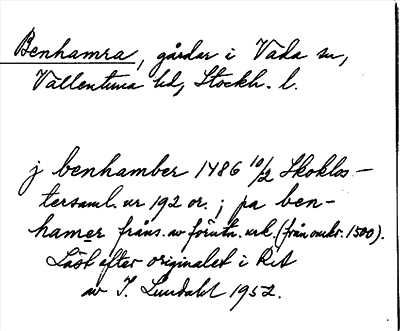 Benhamra, gårdar i Vada sn,
Vallentuna hd, Stockh. l.
j benhamber 1486 10/2 Skoklos-
tersaml. nr 192 or.; pa ben-
hamer påns. av förutn. urk. (från omkr. 1500).
Läst efter originalet i RA
av I. Lundahl 1952.